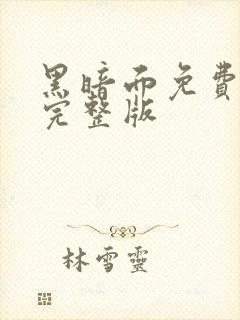 黑暗而免費
完整版
林雪靈